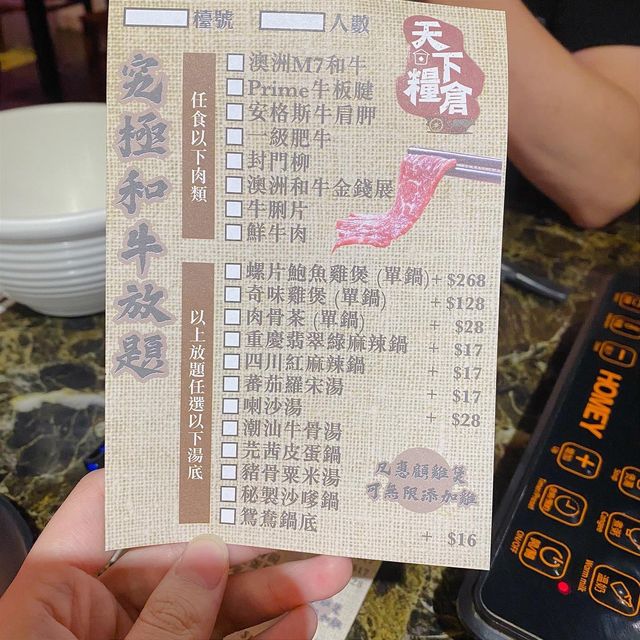 檯號 人數
天下糧倉
究極和牛放題
任食以下肉類
澳洲M7和牛
Prime牛板腱
安格斯牛肩胛
一級肥牛
封門柳
澳洲和牛金錢展
牛脷片
鮮牛肉
以上放題任選以下湯底
螺片鮑魚雞煲 (單鍋) + $268
奇味雞煲 (單鍋) + $128
肉骨茶 (單鍋) + $28
重慶翡翠綠麻辣鍋 + $17
四川紅麻辣鍋 + $17
蕃茄羅宋湯 + $17
喇沙湯 + $28
潮汕牛骨湯
芫茜皮蛋鍋
豬骨粟米湯
秘製沙嗲鍋
鴛鴦鍋底 + $16
凡惠顧雞煲
可無限添加雞
HOMEY
ON/OFF
Warm milk